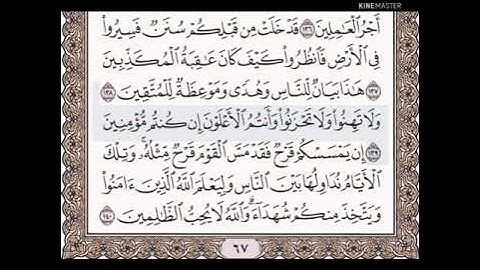 KINEMASTER
أَجْرُ ٱلْعَٰمِلِينَ ١٣٦ قَدْ خَلَتْ مِن قَبْلِكُمْ سُنَنٌ فَسِيرُوا۟
فِى ٱلْأَرْضِ فَٱنظُرُوا۟ كَيْفَ كَانَ عَٰقِبَةُ ٱلْمُكَذِّبِينَ
١٣٧ هَٰذَا بَيَانٌ لِّلنَّاسِ وَهُدًى وَمَوْعِظَةٌ لِّلْمُتَّقِينَ ١٣٨
وَلَا تَهِنُوا۟ وَلَا تَحْزَنُوا۟ وَأَنتُمُ ٱلْأَعْلَوْنَ إِن كُنتُم مُّؤْمِنِينَ
١٣٩ إِن يَمْسَسْكُمْ قَرْحٌ فَقَدْ مَسَّ ٱلْقَوْمَ قَرْحٌ مِّثْلُهُۥ وَتِلْكَ
ٱلْأَيَّامُ نُدَاوِلُهَا بَيْنَ ٱلنَّاسِ وَلِيَعْلَمَ ٱللَّهُ ٱلَّذِينَ ءَامَنُوا۟
وَيَتَّخِذَ مِنكُمْ شُهَدَآءَ وَٱللَّهُ لَا يُحِبُّ ٱلظَّٰلِمِينَ ١٤٠
٦٧